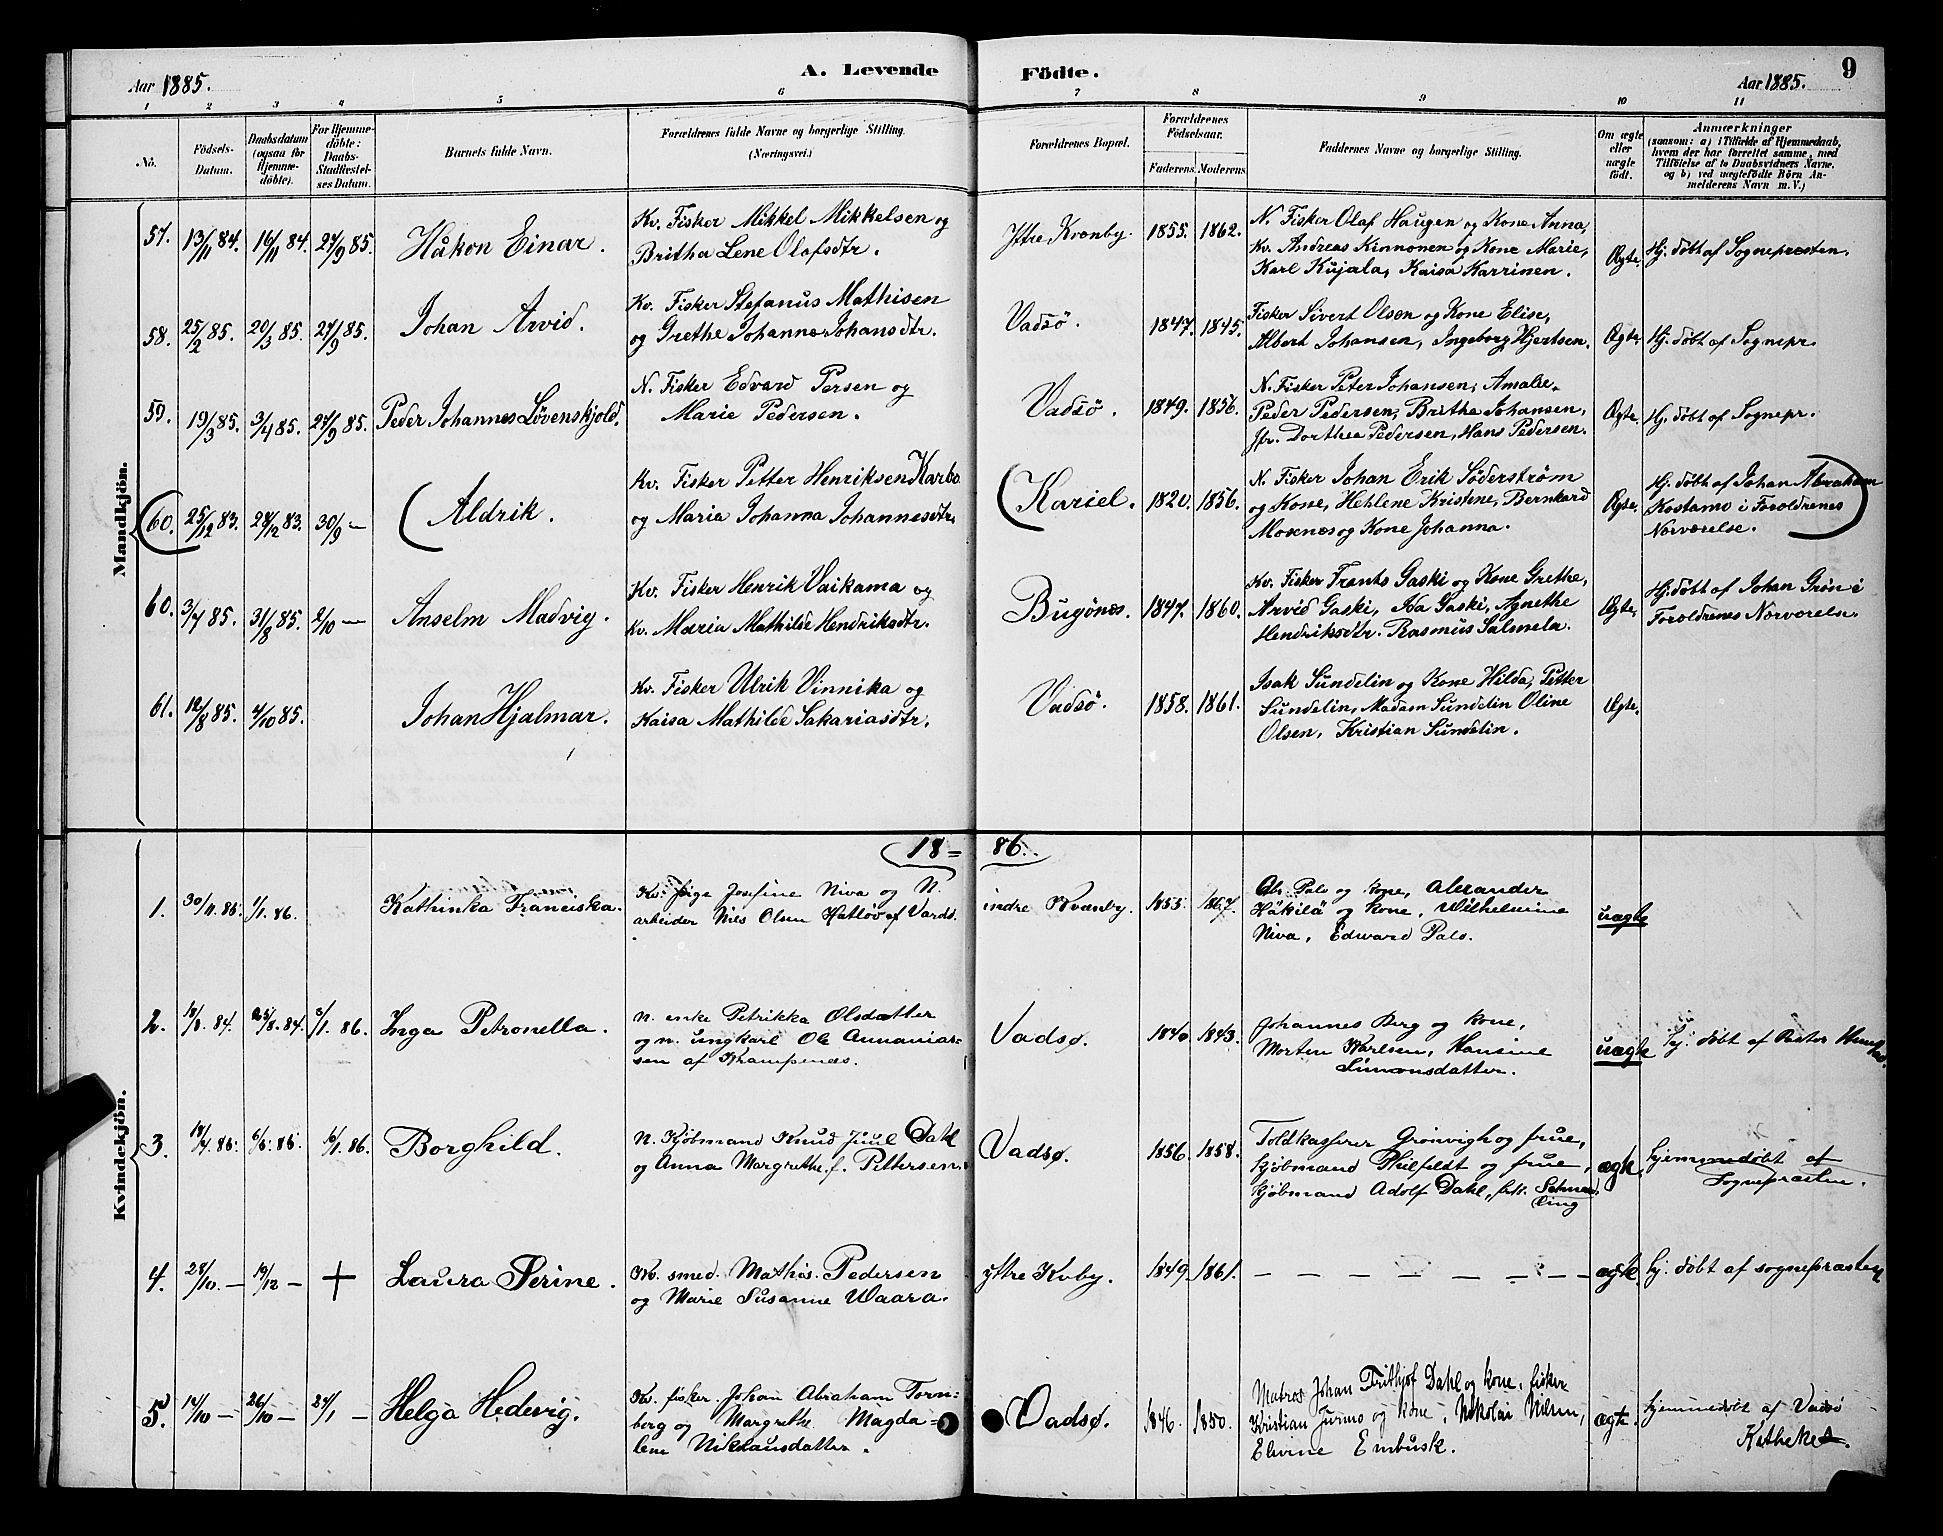 Aar 1885.
A. Levende
Födte.
Aar 1885.
9
1 2 3 4 5 6 7 8 9 10 11
No.
Födsels-
Datum.
Daabsdatum
(ogsaa for
Hjemme-
döbte).
For Hjemme-
döbte:
Daabs-
Stadfæstel-
ses Datum.
Barnets fulde Navn.
Forældrenes fulde Navne og borgerlige Stilling.
(Næringsvei.)
Forældrenes Bopæl.
Forældrenes
Födselsaar.
Faderens. Moderens.
Faddernes Navne og borgerlige Stilling.
Om ægte
eller
uægte
födt.
Anmærkninger
(saasom: a) i Tilfælde af Hjemmedaab,
hvem der har forrettet samme, med
Tilföielse af to Daabsvidners Navne.
og b) ved uægtefödte Börn An-
melderens Navn m. V.)
Mandkjön.
57. 13/11 84. 16/11 84. 27/9 85. Håkon Einar.
Kv. Fisker Mikkel Mikkelsen og
Britha Lene Olafsdtr.
Yttre Kvænby. 1855. 1862.
N. Fisker Olaf Haugen og Kone Anna,
Kv. Andreas Kinnonen og Kone Marie,
Karl Kujala, Kaisa Karrinen.
Ægte. Hj. döbt af Sognepræsten.
58. 25/2 85. 20/3 85. 27/9 85. Johan Arvid.
Kv. Fisker Stefanus Mathisen
og Grethe Johanne Johansdtr.
Vadsö. 1847. 1845.
Fisker Sivert Olsen og Kone Elise,
Albert Johansen, Ingeborg Hjertsen.
Ægte. Hj. döbt af Sognepr.
59. 19/3 85. 3/4 85. 27/9 85. Peder Johannes Lövenskjold.
N. Fisker Edvard Persen og
Marie Pedersen.
Vadsö. 1849. 1856.
N. Fisker Peter Johansen, Amalie,
Peder Pedersen, Brithe Johansen,
Jfr. Dorthea Pedersen, Hans Pedersen.
Ægte. Hj. döbt af Sognepr.
(60. 25/12 83. 28/12 83. 30/9 — (Aldrik.
Kv. Fisker Petter Henriksen Karbo
og Maria Johanna Johannesdtr.
(Kariel. 1820. 1856.
N. Fisker Johan Erik Söderström
og Kone, Hehlene Kristine, Bernhard
Mosenes og Kone Johanna.
Ægte. Hj. döbt af Johan Abraham
Kostamo i Forældrenes
Nærværelse.)
60. 3/7 85. 31/8 85. 2/10 — Anselm Madvig.
Kv. Fisker Henrik Vaikama og
Kv. Maria Mathilde Hendriksdtr.
Bugönes. 1847. 1860.
Kv. Fisker Frants Gaski og Kone Grethe,
Arvid Gaski, Ida Gaski, Agnethe
Hendriksdtr. Rasmus Salmela.
Ægte. Hj. döbt af Johan Grön i
Forældrenes Nærværelse.
61. 12/8 85. 4/10 85. Johan Hjalmar.
Kv. Fisker Ulrik Vinnika og
Kaisa Mathilde Sakariasdtr.
Vadsö. 1858. 1861.
Isak Sundelin og Kone Hilda, Petter
Sundelin, Madam Sundelin Oline
Olsen, Kristian Sundelin.
Ægte.
Kvindekjön.
18=86.
1. 30/11. 85. 1/1. 86. Kathinka Franciska.
Kv. pige Josefine Niva og N.
arbeider Nils Olsen af Vardö.
indre Kvænby. 1853. 1867.
Palo og kone, Alexander
Häkilä og kone, Wilhelmine
Niva, Edward Palo.
uægte
2. 18/8. 84. 25/8. 84. 3/1. 86. Inga Petronella.
n. enke Petrikka Olsdatter
og n. ungkarl Ole Annanias-
sen af Krampenæs.
Vadsø. 1840 1843.
Johannes Berg og kone,
Morten Karlsen, Hansine
Simonsdatter.
uægte hj. døbt af
3. 14/4. 85. 6/5. 85. 16/1. 86. Borghild.
n. Kjöbmand Knud Juul Dahl
og Anna Margrethe f. Pettersen.
Vadsø. 1856. 1858.
Toldkasserer Grönvigh og frue,
kjöbmand og frue,
kjöbmand Adolf Dahl, frk. Schmed
ling
ægte. hjemmedøbt af
Sognepræsten.
4. 28/10. — 19/12 — + Laura Serine.
Kv. smed. Mathis. Pedersen
og Marie Susanne Waara.
yttre Kvby. 1849 1861. — — — — — — — —
ægte. hj. døbt af sognepræsten
5. 14/10 — 26/10 — 24/1 — Helga Hedevig.
Kv. fisker. Johan Abraham Torn-
berg og Margrethe Magda=
lene Niklausdatter.
Vadsø. 1846. 1850.
Matros Johan Frithjof Dahl og kone, fisker
Kristian Jurmo og kone, Nikolai Nilsen,
Elvine Embusk.
ægte. hjemmedøbt af Vadsø
Katheket.